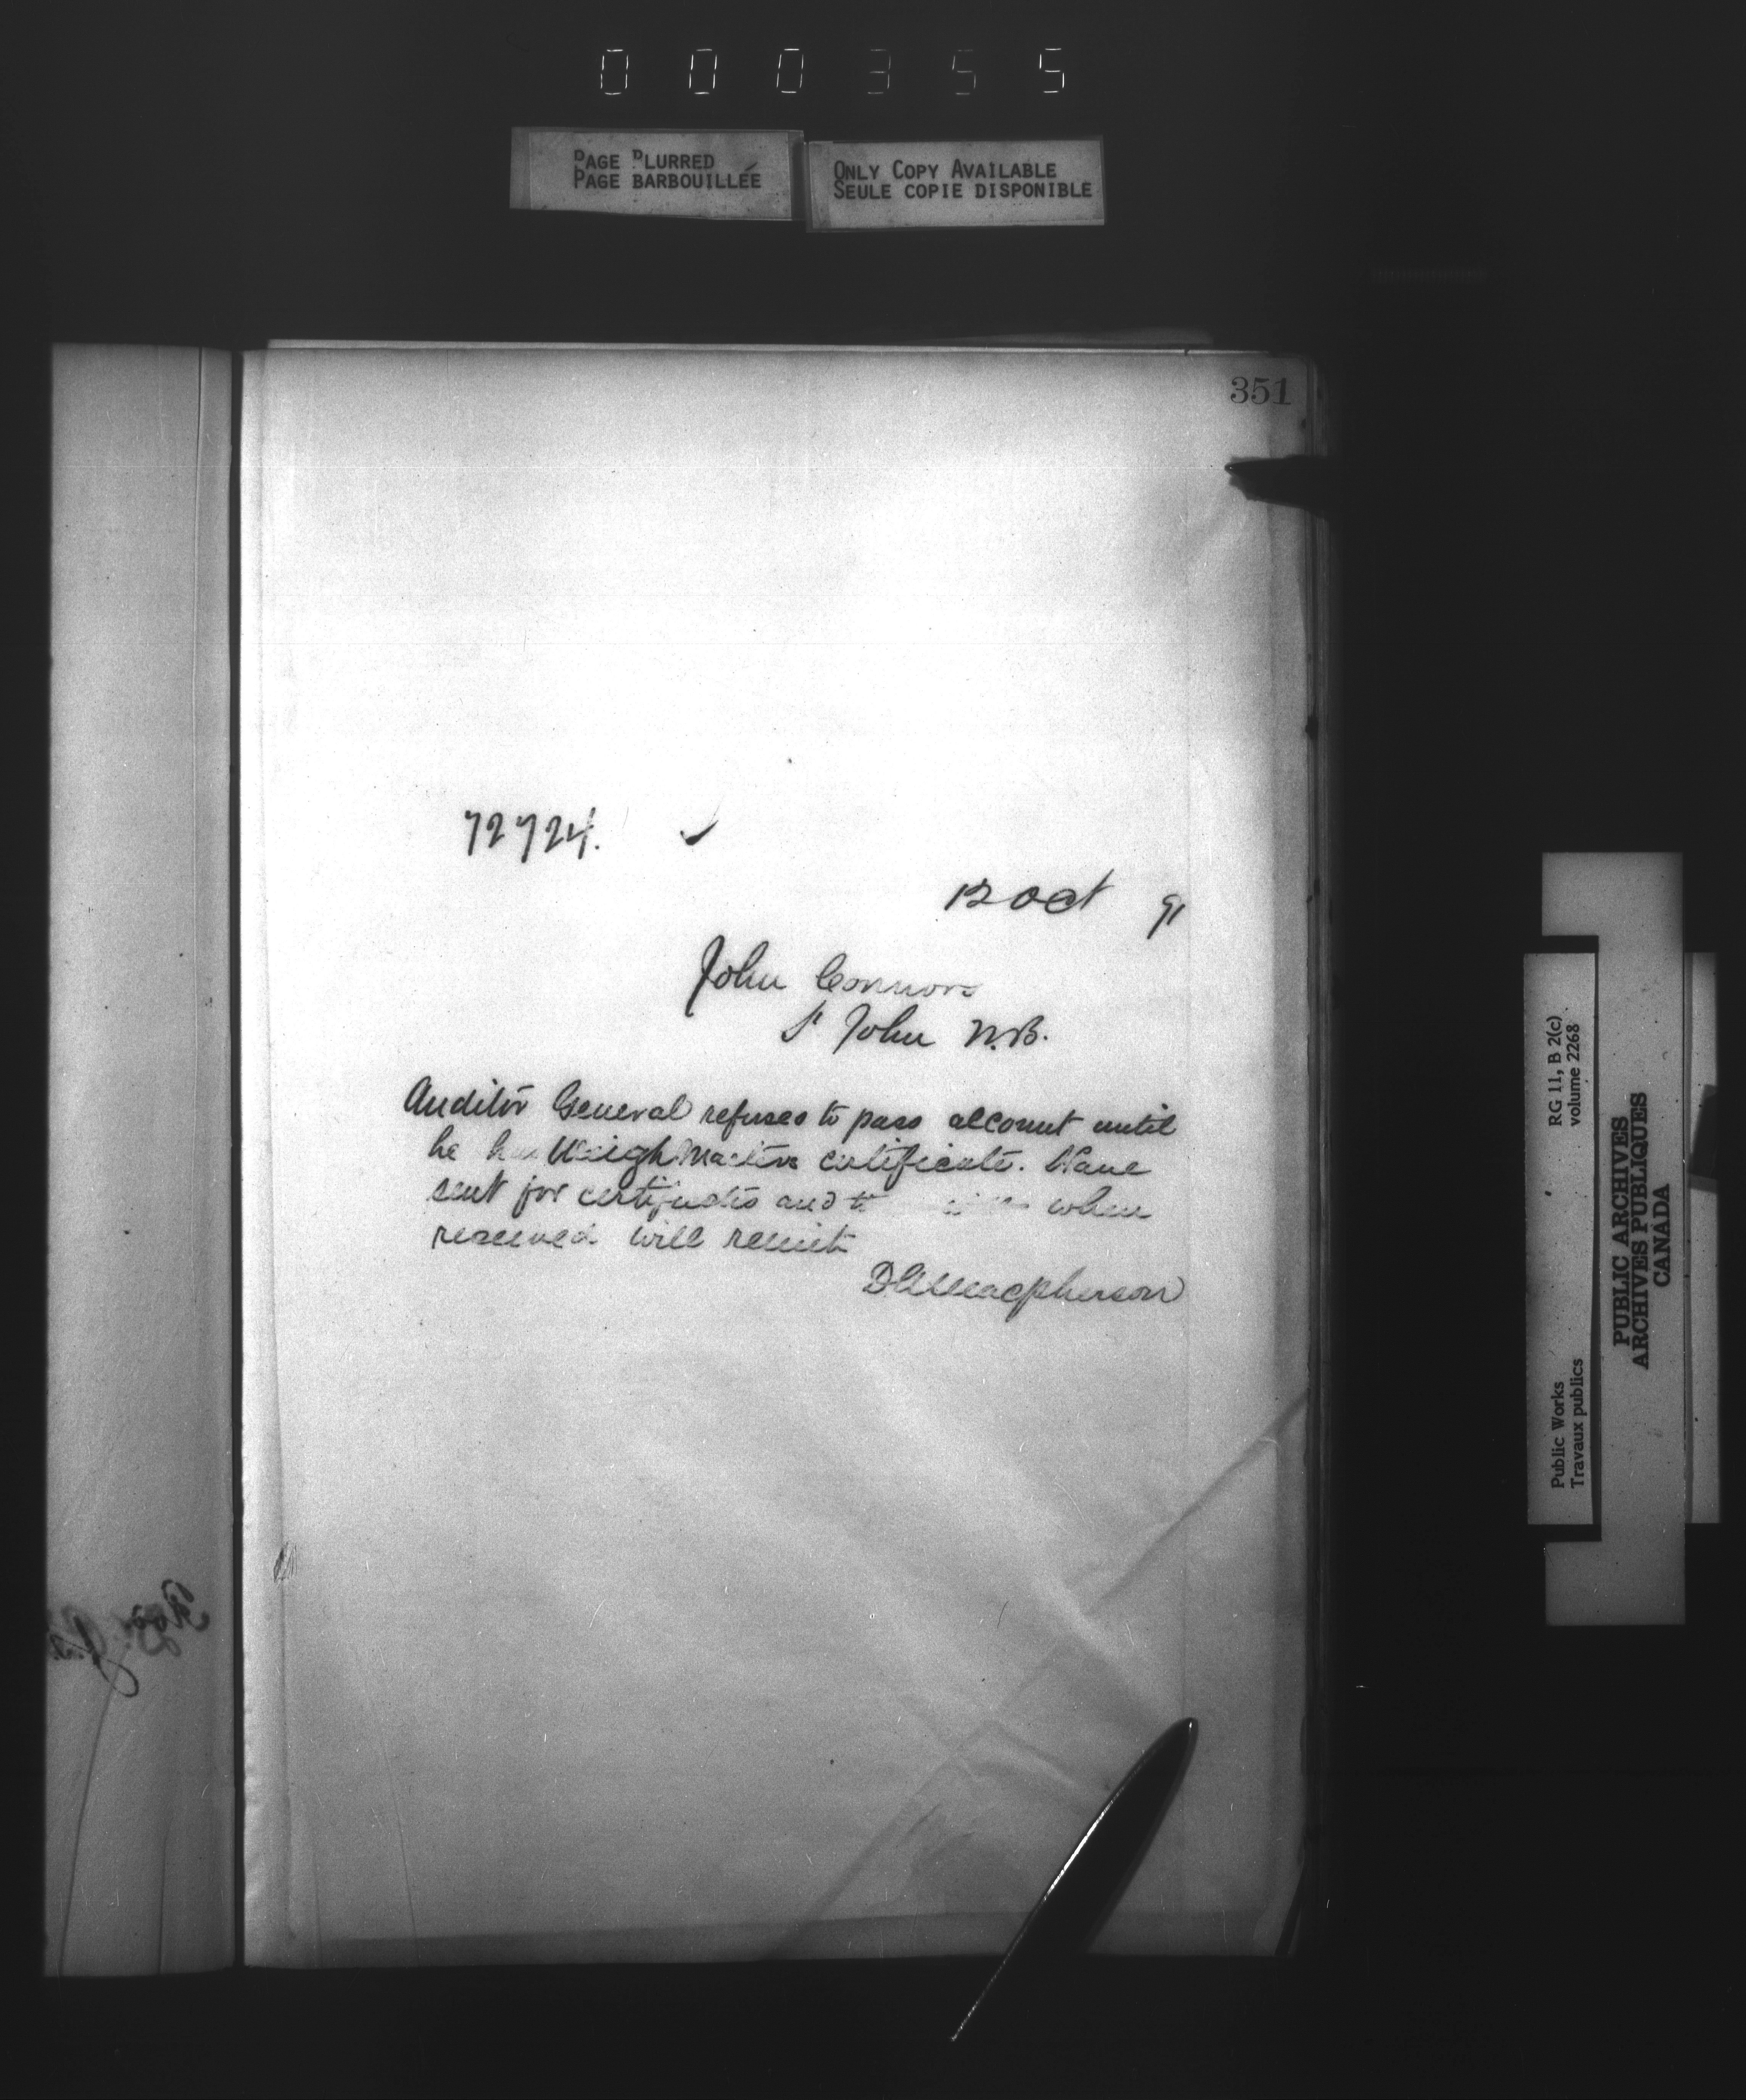 000355
PAGE BLURRED
PAGE BARBOUILLÉE
ONLY COPY AVAILABLE
SEULE COPIE DISPONIBLE
351
72724.
12 Oct 91
John Connors
St John N.B.
Auditor General refuses to pass account until
he has Weigh Masters certificate. Have
sent for certificates and when
received will remit
D A Macpherson
Public Works
Travaux publics
RG 11, B 2(c)
volume 2268
PUBLIC ARCHIVES
ARCHIVES PUBLIQUES
CANADA